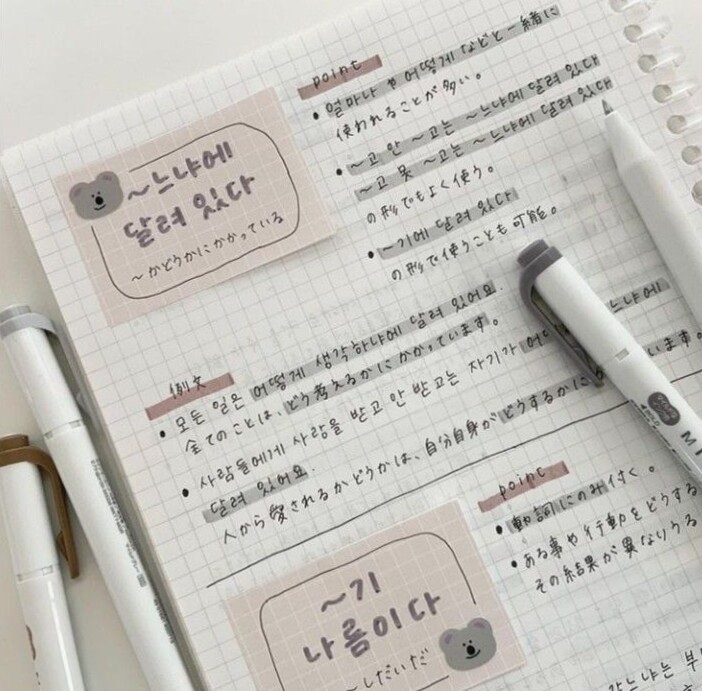 ~느냐에
달려 있다
~かどうかにかかっている
point
• 얼마나 や 어떻게 などと一緒に
使われることが多い。
• ~고 안 ~고는 ~느냐에 달려 있다
~고 못 ~고는 ~느냐에 달려 있다
の形でもよく使う。
• ~기에 달려 있다
の形で使うことも可能。
例文
• 모든 일은 어떻게 생각하냐에 달려 있어요.
全てのことは、どう考えるかにかかっています。
• 사람들에게 사랑을 받고 안 받고는 자기가 느냐에
달려 있어요.
人から愛されるかどうかは、自分自身がどうするかに います。
~기
나름이다
~しだいだ
point
• 動詞にのみ付く。
• ある事や行動をどうする
その結果が異なりうる